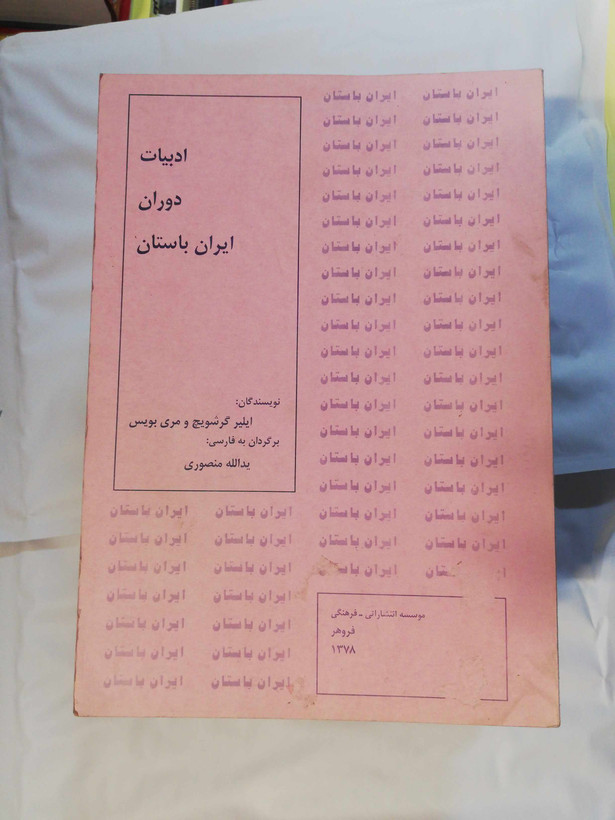 ادبیات
دوران
ایران باستان
نویسندگان:
ایلیر گرشویچ و مری بویس
برگردان به فارسی:
یدالله منصوری
ایران باستان ایران باستان
ایران باستان ایران باستان
ایران باستان ایران باستان
ایران باستان ایران باستان
ایران باستان ایران باستان
ایران باستان ایران باستان
ایران باستان ایران باستان
ایران باستان ایران باستان
ایران باستان ایران باستان
ایران باستان ایران باستان
ایران باستان ایران باستان
ایران باستان ایران باستان
ایران باستان ایران باستان
ایران باستان ایران باستان
ایران باستان ایران باستان
ایران باستان ایران باستان
ایران باستان ایران باستان ایران باستان ایران باستان
ایران باستان ایران باستان ایران باستان ایران باستان
ایران باستان ایران باستان ایران باستان
ایران باستان ایران باستان
ایران باستان ایران باستان
ایران باستان ایران باستان
ایران باستان ایران باستان
موسسه انتشاراتی - فرهنگی
فروهر
۱۳۷۸